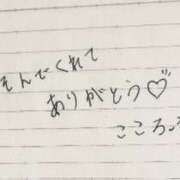 えんでくれて
ありがとう♡
こころ